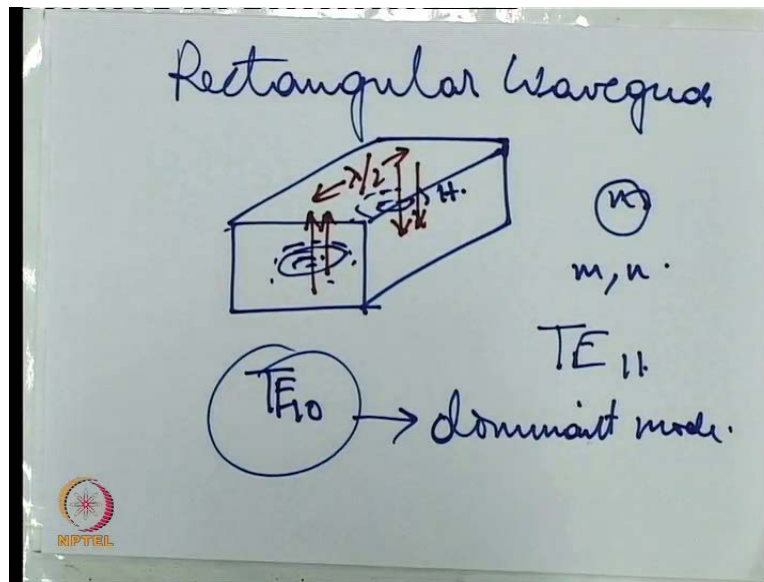 Rectangular Wavegu
λ/2
H.
n
m, n.
TE 11
TE10
dominant mode.
NPTEL